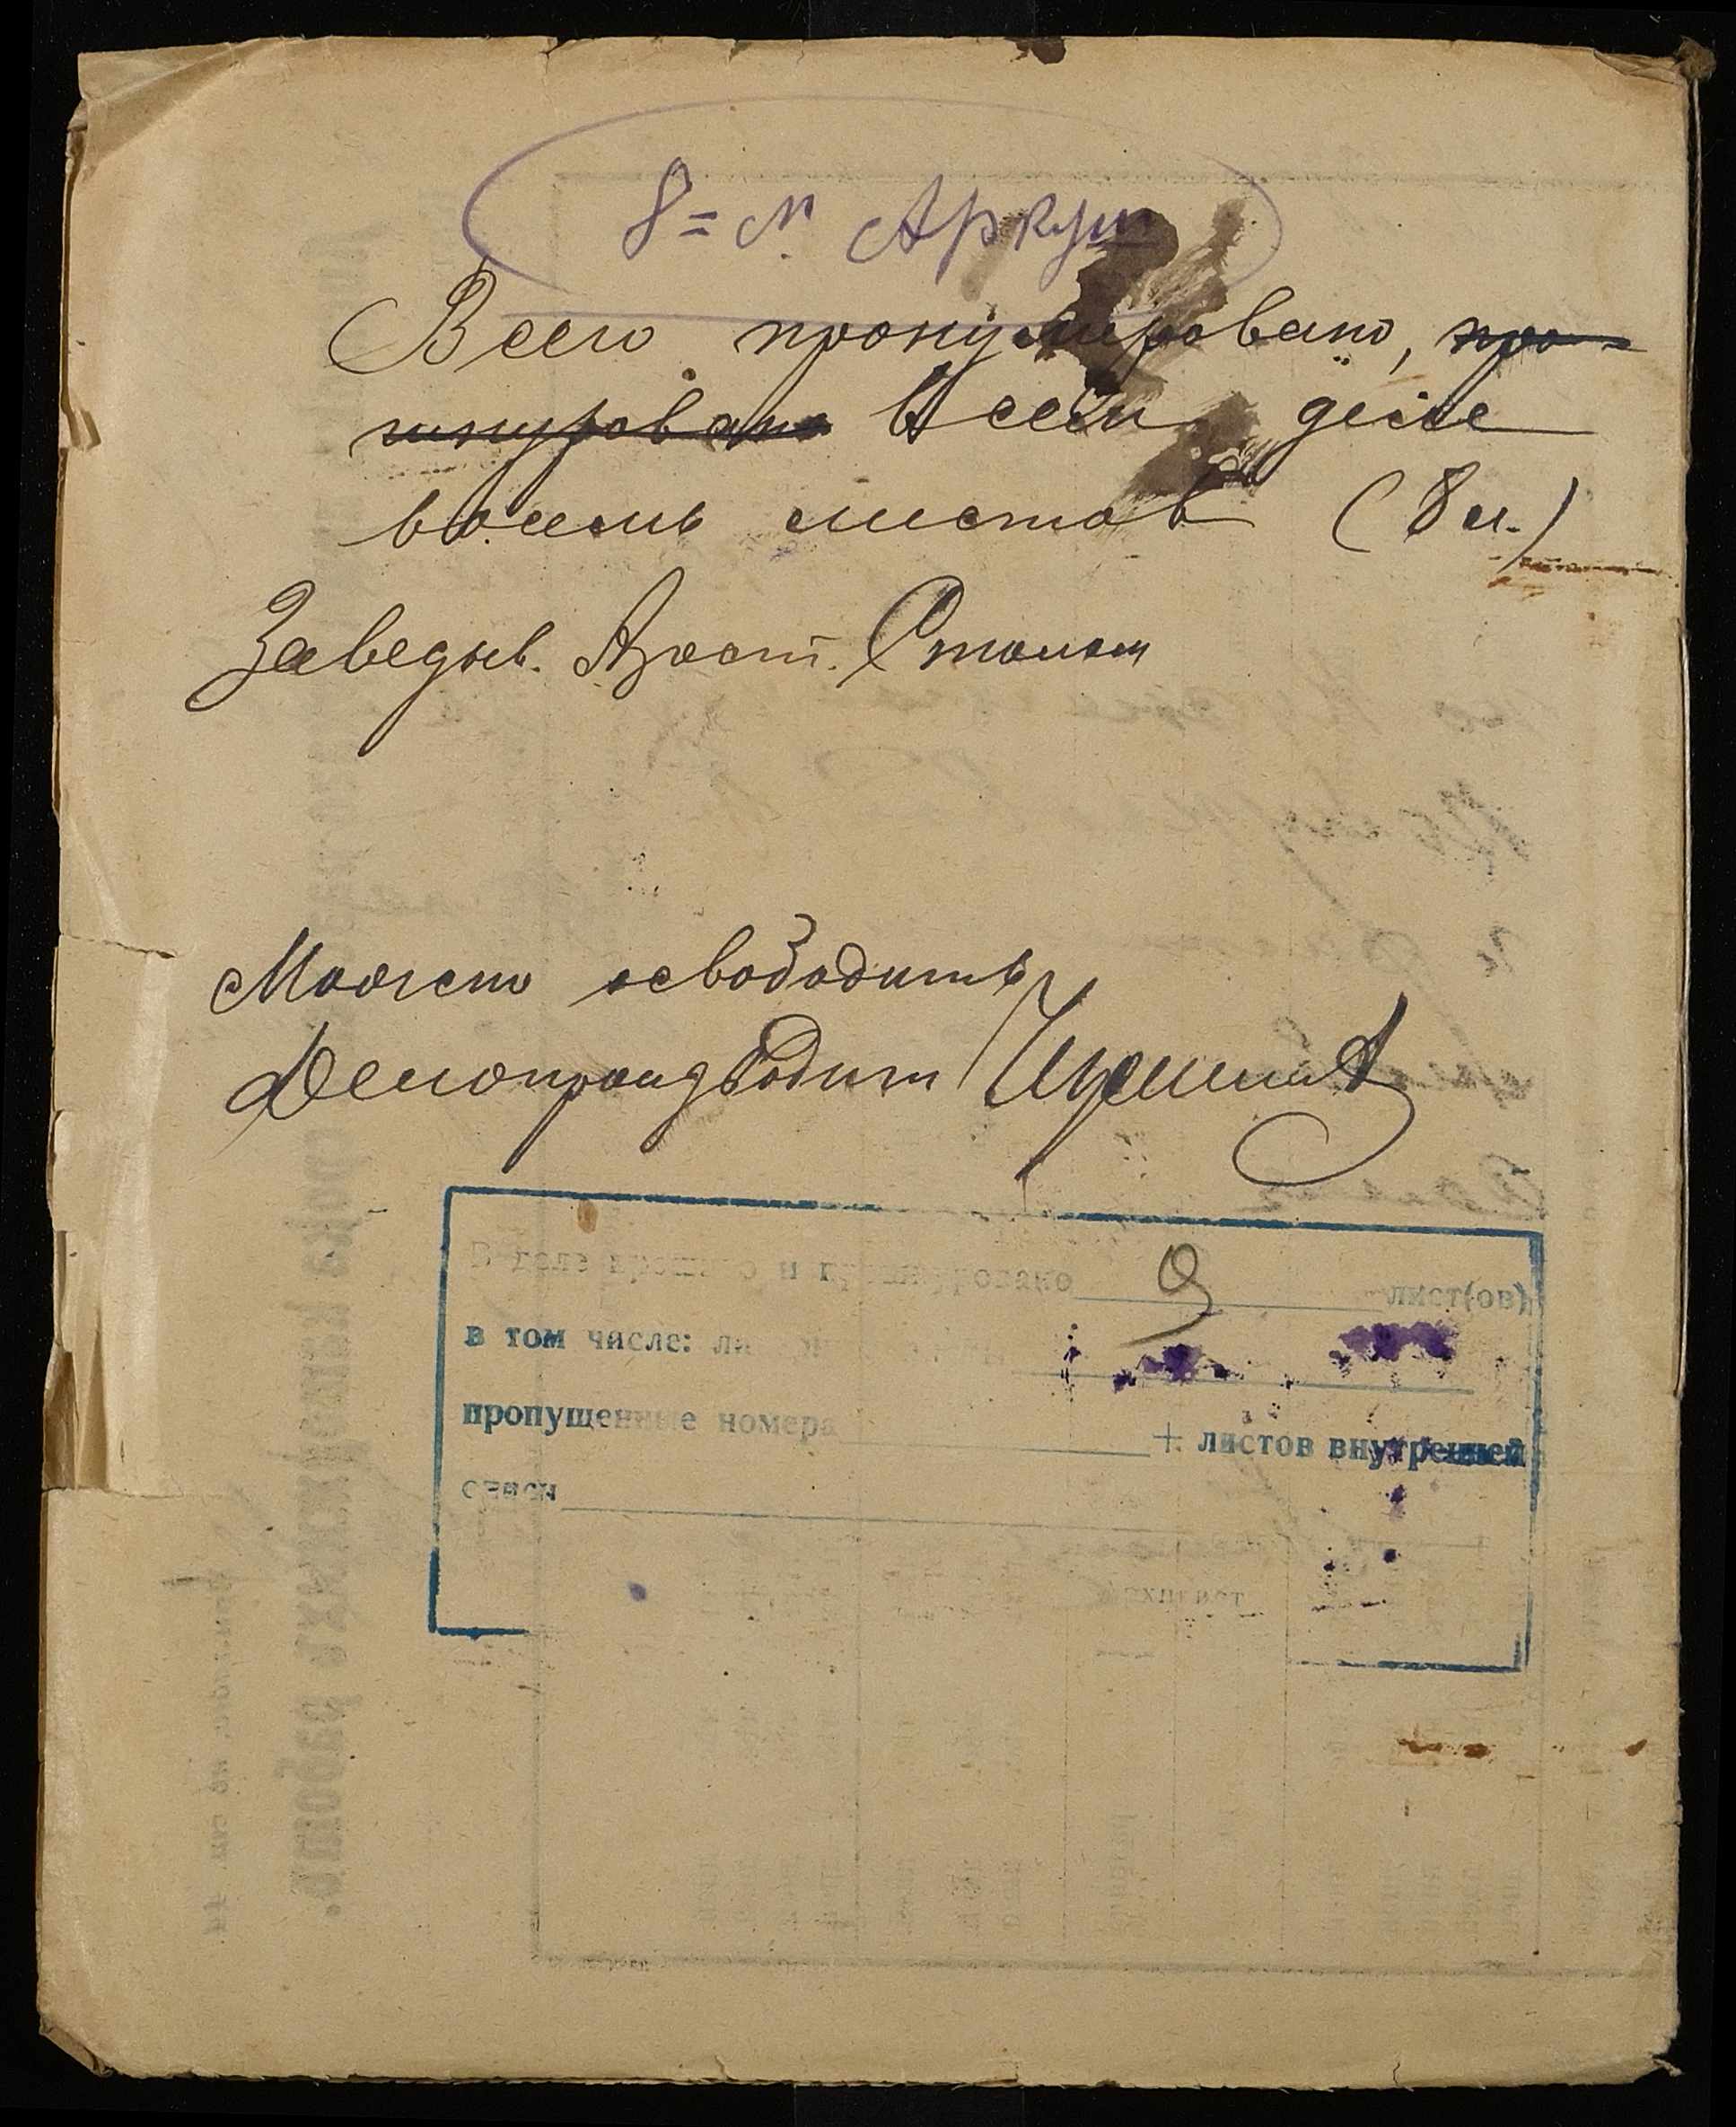 8 = м Аркуш
Всего пронумеровано, про-
шнуровано В сем деле
восемь листов (8 л.)
Заведыв. Арест. Столом
Можно освободить
Делопроизводит
В деле прошито и пронумеровано 9 лист(ов)
в том числе:
пропущенные номера + листов внутренней
описи
Архивист